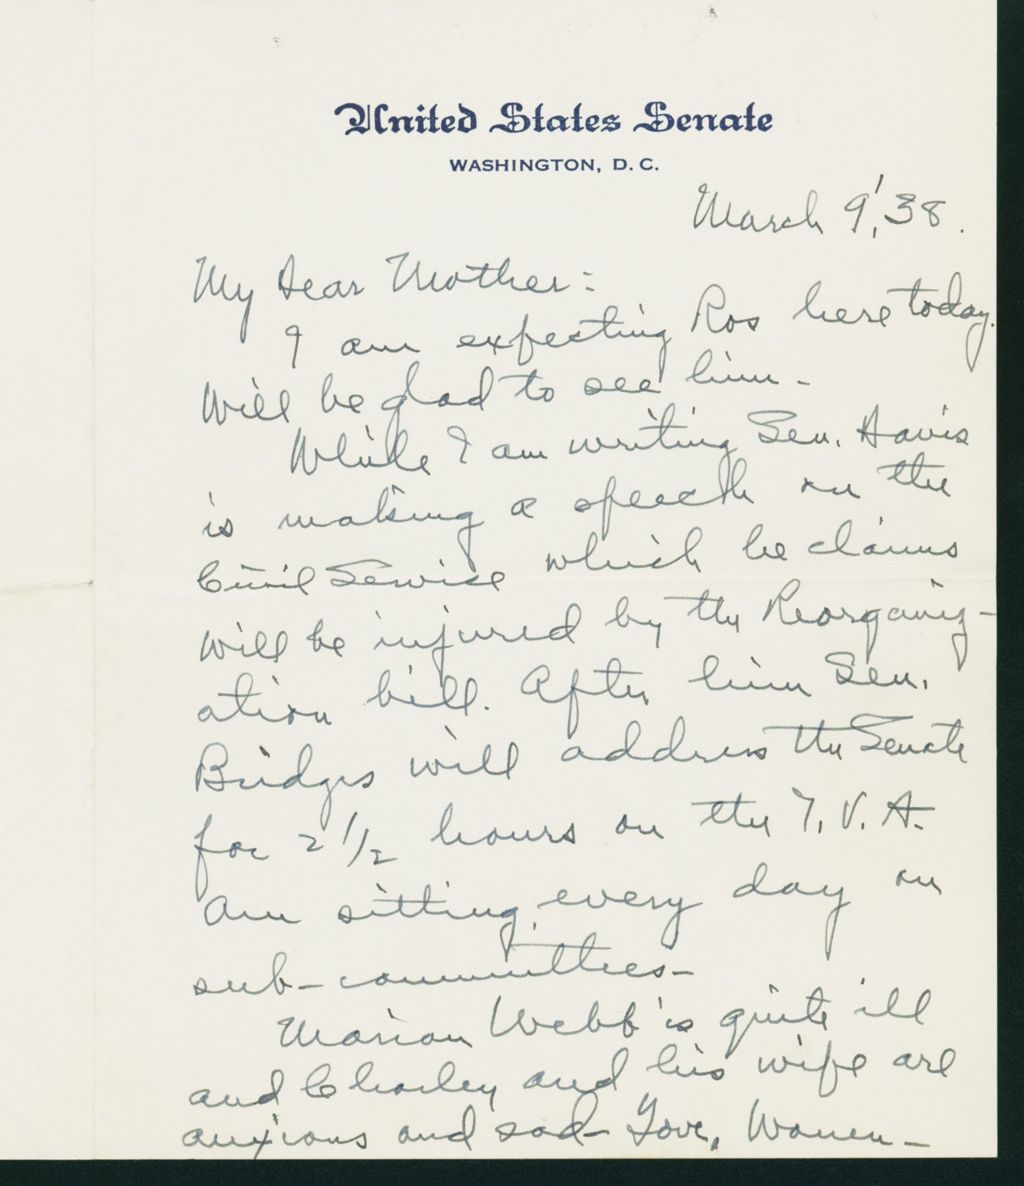 United States Senate
WASHINGTON, D. C.
March 9, '38.
My dear Mother:
I am expecting Ros here today.
Will be glad to see him -
While I am writing Sen. Davis
is making a speech on the
Civil Service which he claims
will be injured by the Reorganiz-
ation bill. After him Sen.
Bridges will address the Senate
for 2 1/2 hours on the T. V. A.
Am sitting every day on
sub-committees-
Marion Webb is quite ill
and Charley and his wife are
anxious and sad- Love, Warren -